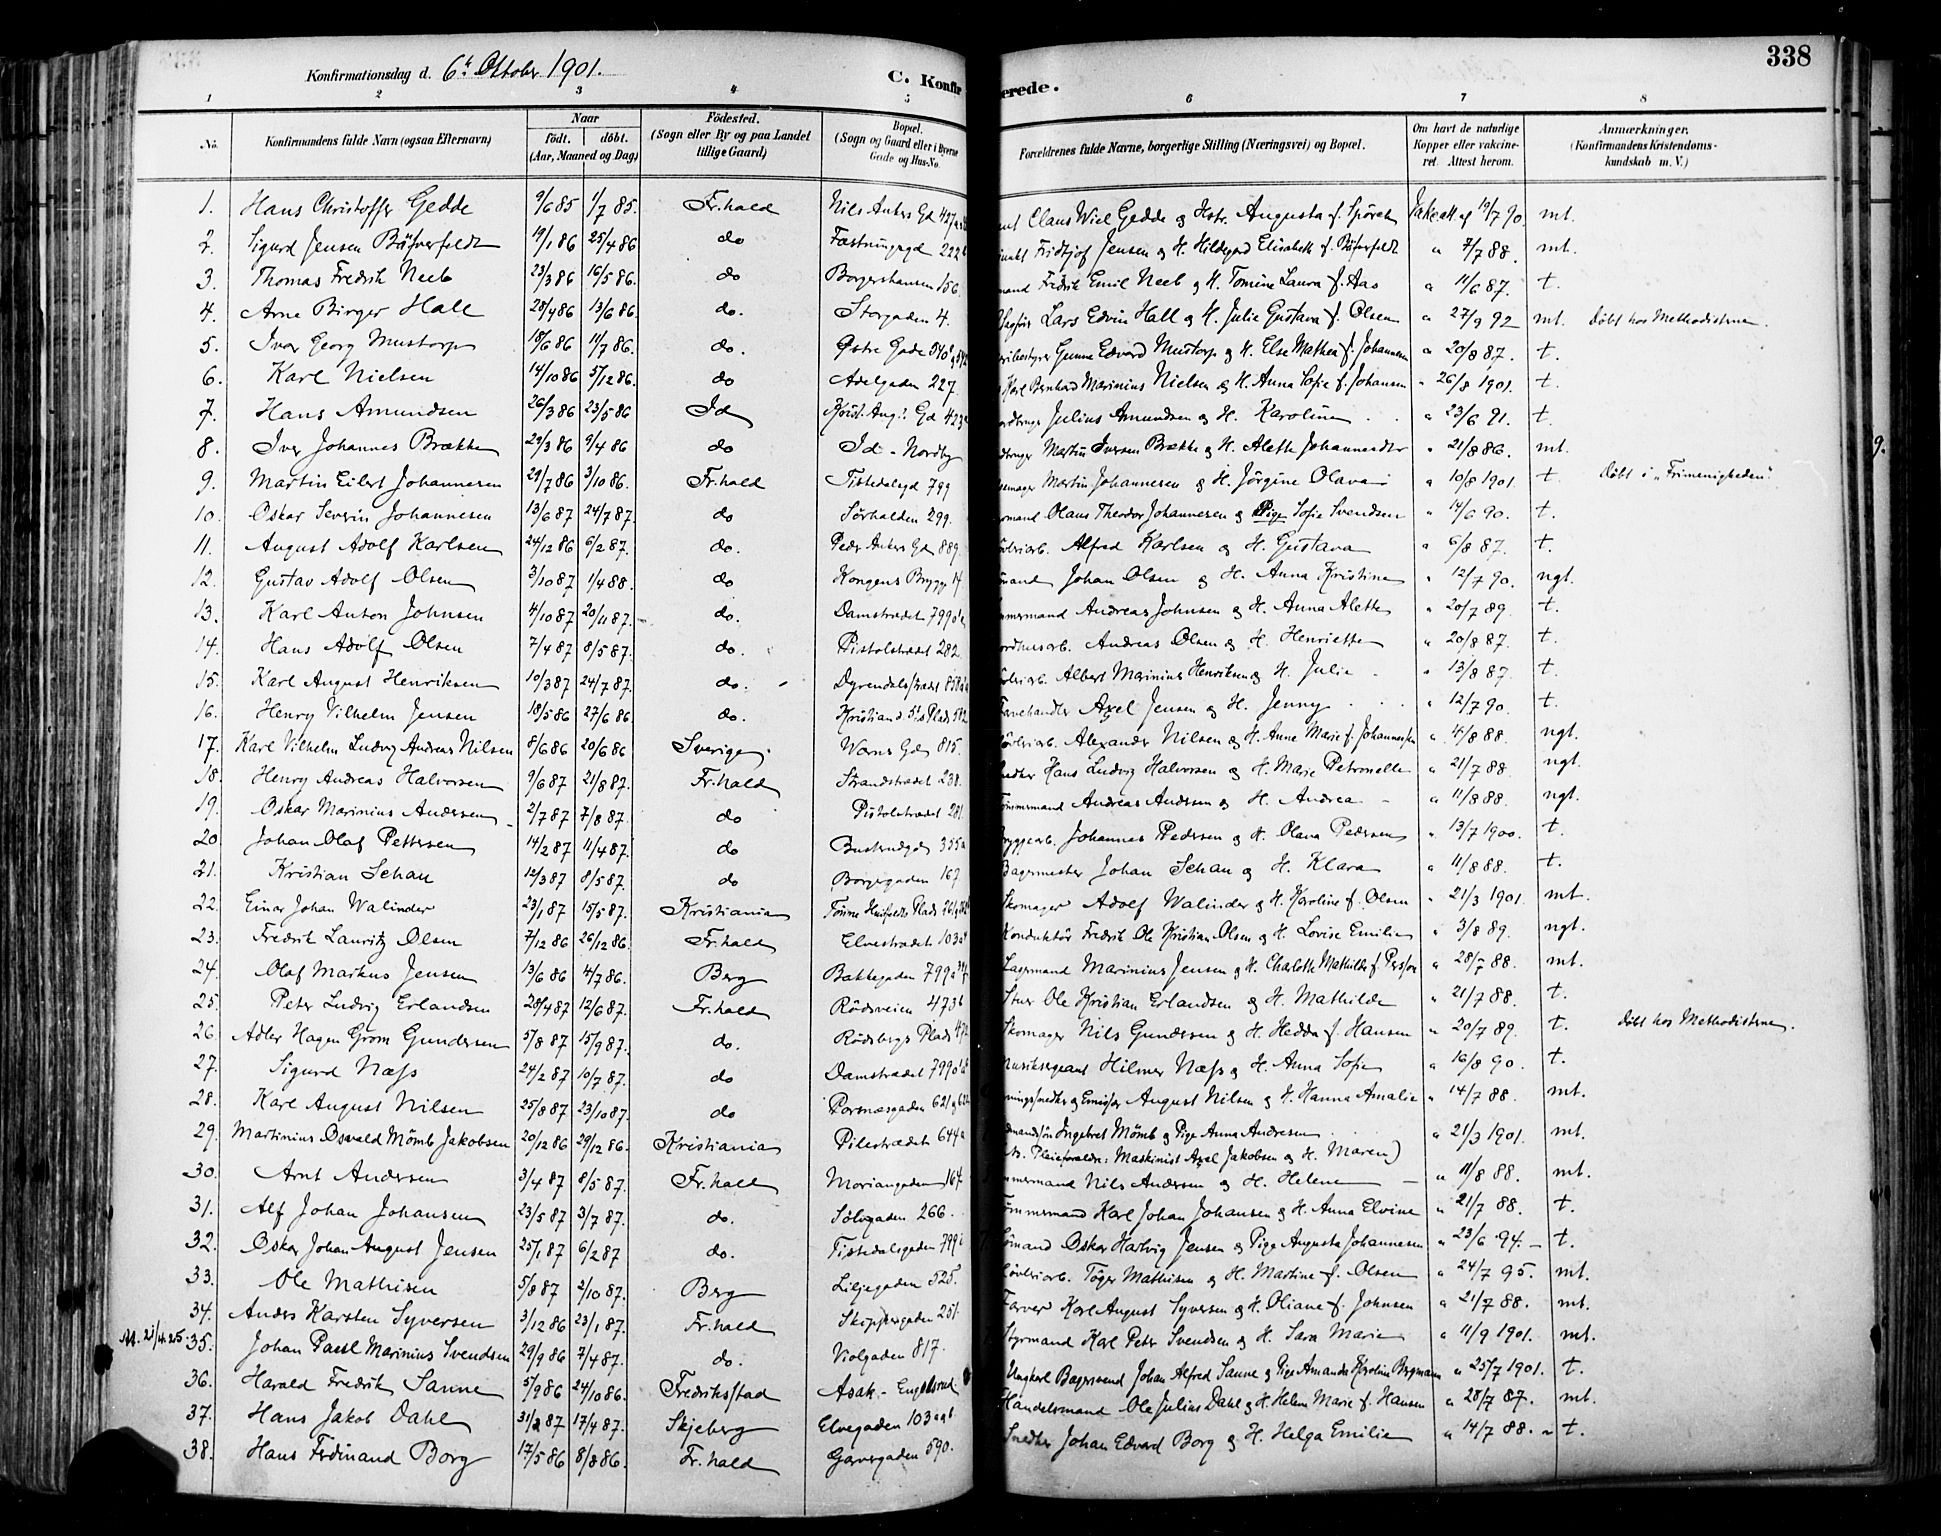 338
Konfirmationsdag d. 6te Oktober 1901.
C. Konfir erede.
1 2 3 4 5 6 7 8
No. Konfirmandens fulde Navn (ogsaa Efternavn) Naar födt. döbt. (Aar, Maaned og Dag) Födested. (Sogn eller By og paa Landet tillige Gaard) Bopæl. (Sogn og Gaard eller i Byerne Gade og Hus-No. Forældrenes fulde Navne, borgerlige Stilling (Næringsvei) og Bopæl. Om havt de naturlige Kopper eller vakcineret. Attest herom. Anmærkninger. (Konfirmandens Kristendomskundskab m. V.)
1. Hans Christoffer Gedde 9/6 85 1/7 85. Fr.hald Nils Ankers Gd Claus Wiel Gedde og Hstr. Augusta f. 19/7 90. mt.
2. Sigurd Jensen Bäfverfeldt 19/1 86 25/4 86 do Fæstningsgd 222 Fridtjof Jensen og H. Hildegard Elisabeth f. Bäfverfeldt " 7/7 88. mt.
3. Thomas Fredrik Neeb 23/3 86 16/5 86. do Borgershausen 156. Fredrik Emil Neeb og H. Tomine Laura f. Aas " 11/6 87. t.
4. Arne Birger Hall 28/4 86 13/6 86. do. Storgaden 4. Lars Edvin Hall og H. Julie Gustava f. Olsen " 27/9 92 mt. Döbt hos Methodisterne.
5. Ivar Georg Mustorp 18/6 86 11/7 86. do. Østre Gade 540 Gunne Edvard Mustorp og H. Else Mathea f. Johannesen " 20/8 87. t.
6. Karl Nielsen 14/10 86 5/12 86. do Adelgaden 227. Karl Bernhard Marinius Nielsen og H. Anna Sofie f. Johansen " 26/8 1901. t.
7. Hans Amundsen 26/3 86 23/5 86 Id Krist. Aug.s Gd 423 Julius Amundsen og H. Karoline " 23/6 91. t.
8. Iver Johannes Brække 29/3 86 9/4 86 do Id - Nordby Martin Iversen Brække og H. Alette Johannesdtr " 21/8 86. mt.
9. Martin Eilert Johannesen 29/7 86 3/10 86. Fr.hald Tistedalsgd 799 Martin Johannesen og H. Jörgine Olava " 10/8 1901. t Döbt i „Frimenigheden".
10. Oskar Severin Johannesen 13/6 87 24/7 87. do Sörhalden 299. Olaus Theodor Johannesen og Pige Sofie Svendsen " 14/6 90. t.
11. August Adolf Karlsen 24/12 86 6/2 87. do. Peder Ankers Gd 889. Alfred Karlsen og H. Gustava " 6/8 87. t.
12. Gustav Adolf Olsen 3/10 87 1/4 88. do Kongens Brygge 14. Johan Olsen og H. Anna Kristine " 12/7 90. ngt.
13. Karl Anton Johnsen 4/10 87 20/11 87. do. Damstrædet 799 Andreas Johnsen og H. Anna Alette " 20/7 89. t.
14. Hans Adolf Olsen 7/4 87 8/5 87. do. Pistolstrædet 282. Andreas Olsen og H. Henriette " 20/8 87. t.
15. Karl August Henriksen 10/3 87 24/7 87. do. Dyrendalsstrædet 858 Albert Marinius Henriksen og H. Julie " 13/8 87. t.
16. Henry Vilhelm Jensen 18/5 86 27/6 86. do. Kristian d. 5.s Plads 582 Farvehandler Axel Jensen og H. Jenny " 12/7 90. t.
17. Karl Vilhelm Ludvig Andreas Nilsen 8/6 86 20/6 86 Sverige. Werns Gd 815. Alexander Nilsen og H. Anne Marie f. Johannesen " 4/8 88. ngt.
18. Henry Andreas Halvorsen 9/6 87 21/8 87. Fr.hald Strandstrædet 238. Hans Ludvig Halvorsen og H. Marie Petronelle " 21/7 88. ngt.
19. Oskar Marinius Andersen 2/7 87 7/8 87. do Pistolstrædet 281. Tömmermand Andreas Andersen og H. Andrea " 11/8 88. ngt.
20. Johan Olaf Pettersen 14/2 87 11/4 87. do Buskrudgd 355a Bryggearb. Johannes Pedersen og H. Olava Pedersen " 13/7 1900. t.
21. Kristian Schau 12/3 87 8/5 87. do Borgergaden 167 Bagermester Johan Schau og H. Klara " 11/8 88. t.
22. Einar Johan Walinder 23/1 87 15/5 87. Kristiania Tönne Huitfeldts Plads Skomager Adolf Walinder og H. Karoline f. Olsen " 21/3 1901. mt.
23. Fredrik Lauritz Olsen 7/12 86 26/12 86. Fr.hald Elvestrædet 103 Konduktör Fredrik Ole Kristian Olsen og H. Lovise Emilie " 3/8 89. ngt.
24. Olaf Markus Jensen 13/6 86 4/7 86. Berg Bakkegaden 799 Lagermand Marinius Jensen og H. Charlotte Mathilde f. Persson " 28/7 88. mt.
25. Peter Ludvig Erlandsen 28/4 87 12/6 87. Fr.hald Rödsveien 473 b Stuer Ole Kristian Erlandsen og H. Mathilde " 21/7 88. t.
26. Adler Hagen Grom Gundersen 5/8 87 15/9 87. do. Rödsbergs Plads 472 Skomager Nils Gundersen og H. Hedda f. Hansen " 20/7 89. t. döbt hos Methodisterne.
27. Sigurd Næss 24/2 87 10/7 87. do Damstrædet 799 Musiksergeant Hilmer Næss og H. Anna Sofie " 16/8 90. t.
28. Karl August Nilsen 25/8 87 23/10 87. do Porsnæsgaden 621 August Nilsen og H. Hanna Amalie " 14/7 88. mt.
29. Martinius Osvald Mömb Jakobsen 20/12 86 29/12 86. Kristiania Pilestrædet 644a Ingebret Mömb og Pige Anna Andresen " 21/3 1901. mt.
Pleieforældre: Maskinist Axel Jakobsen og H. Maren)
30. Arnt Andersen 3/4 87 8/5 87. Fr.hald Moriangaden 164. Nils Andersen og H. Helene " 11/8 88. mt.
31. Alf Johan Johansen 23/5 87 3/7 87. do. Sölvgaden 266. Tömmermand Karl Johan Johansen og H. Anna Elvine " 21/7 88. t.
32. Oskar Johan August Jensen 25/1 87 6/2 87 do. Tistedalsgaden 799 Sömand Oskar Hartvig Jensen og Pige Augusta Johannesen " 23/6 94. t.
33. Ole Mathisen 5/8 87 2/10 87. Berg Liljegaden 525. Töger Mathisen og H. Martine f. Olsen " 24/7 95. mt.
34. Anders Karsten Syversen 3/12 86 23/1 87. Fr.hald Skippergaden 251. Farver Karl August Syversen og H. Oliane f. Johnsen " 21/7 88. mt.
M. 21/4.25. 35. Johan Paul Marinius Svendsen 29/9 86 7/4 87. do. Violgaden 817. Styrmand Karl Peter Svendsen og H. Sara Marie " 11/9 1901. mt.
36. Harald Fredrik Sanne 5/9 86 24/10 86. Fredriksstad Asak - Engelsrud Ungkarl Bagersvend Johan Alfred Sanne og Pige Amanda Karoline Bergmann " 25/7 1901. t.
37. Hans Jakob Dahl 31/2 87 17/4 87. Skjeberg Elvegaden 103 Handelsmand Ole Julius Dahl og H. Helene Marie f. Hansen " 28/7 87. mt.
38. Hans Ferdinand Borg 17/5 86 8/8 86. Fr.hald Garvergaden 590. Snedker Johan Edvard Borg og H. Helga Emilie " 14/7 88. t.